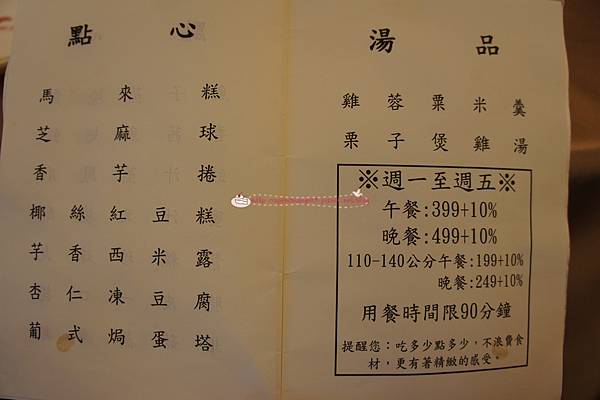 點心
馬來糕
芝麻球
香芋捲
椰絲紅豆糕
芋香西米露
杏仁凍豆腐
葡式焗蛋塔
湯品
雞蓉粟米羹
栗子煲雞湯
※週一至週五※
午餐:399+10%
晚餐:499+10%
110-140公分午餐:199+10%
晚餐:249+10%
用餐時間限90分鐘
提醒您：吃多少點多少，不浪費食
材，更有著精緻的感受。